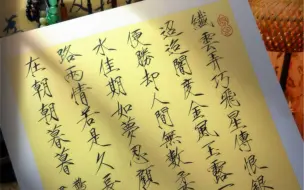 纖雲弄巧飛星傳恨銀
迢迢闇度金風玉露
便勝却人間無數柔
水佳期如夢忍顧
路兩情若是久長
在朝朝暮暮